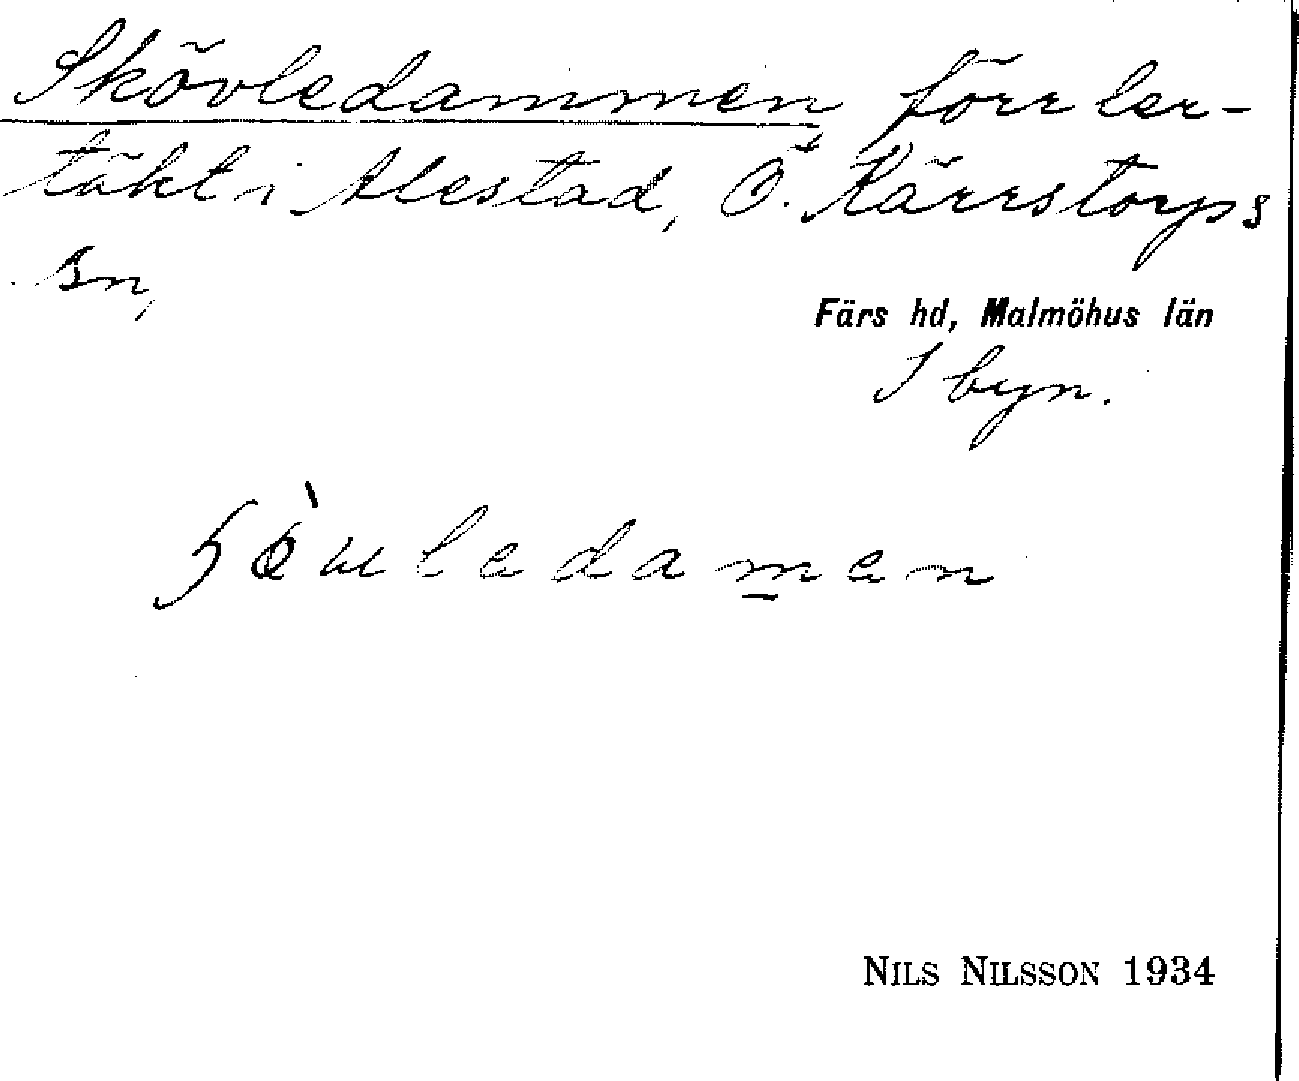 Skövledammen, förr ler-
täkt i Alestad, Ö. Kärrstorps
sn,
Färs hd, Malmöhus län
I byn.
NILS NILSSON 1934